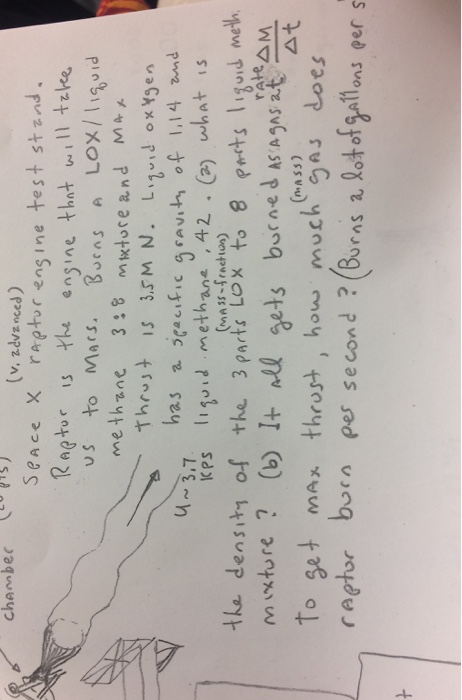 chamber (20 pts)
(v. advanced)
Space X raptor engine test stand.
Raptor is the engine that will take
us to Mars. Burns a LOX/liquid
methane 3:8 mixture and Max
thrust is 3.5 M N. Liquid oxygen
has a specific gravity of 1.14 and
u~3.7
KPS
liquid methane, .42. (a) what is
(mass-fraction)
the density of the 3 parts LOX to 8 parts liquid meth.
mixture? (b) It all gets burned as a gas at rate ΔM/Δt
(mass)
To get max thrust, how much gas does
raptor burn per second? (Burns a lot of gallons per s